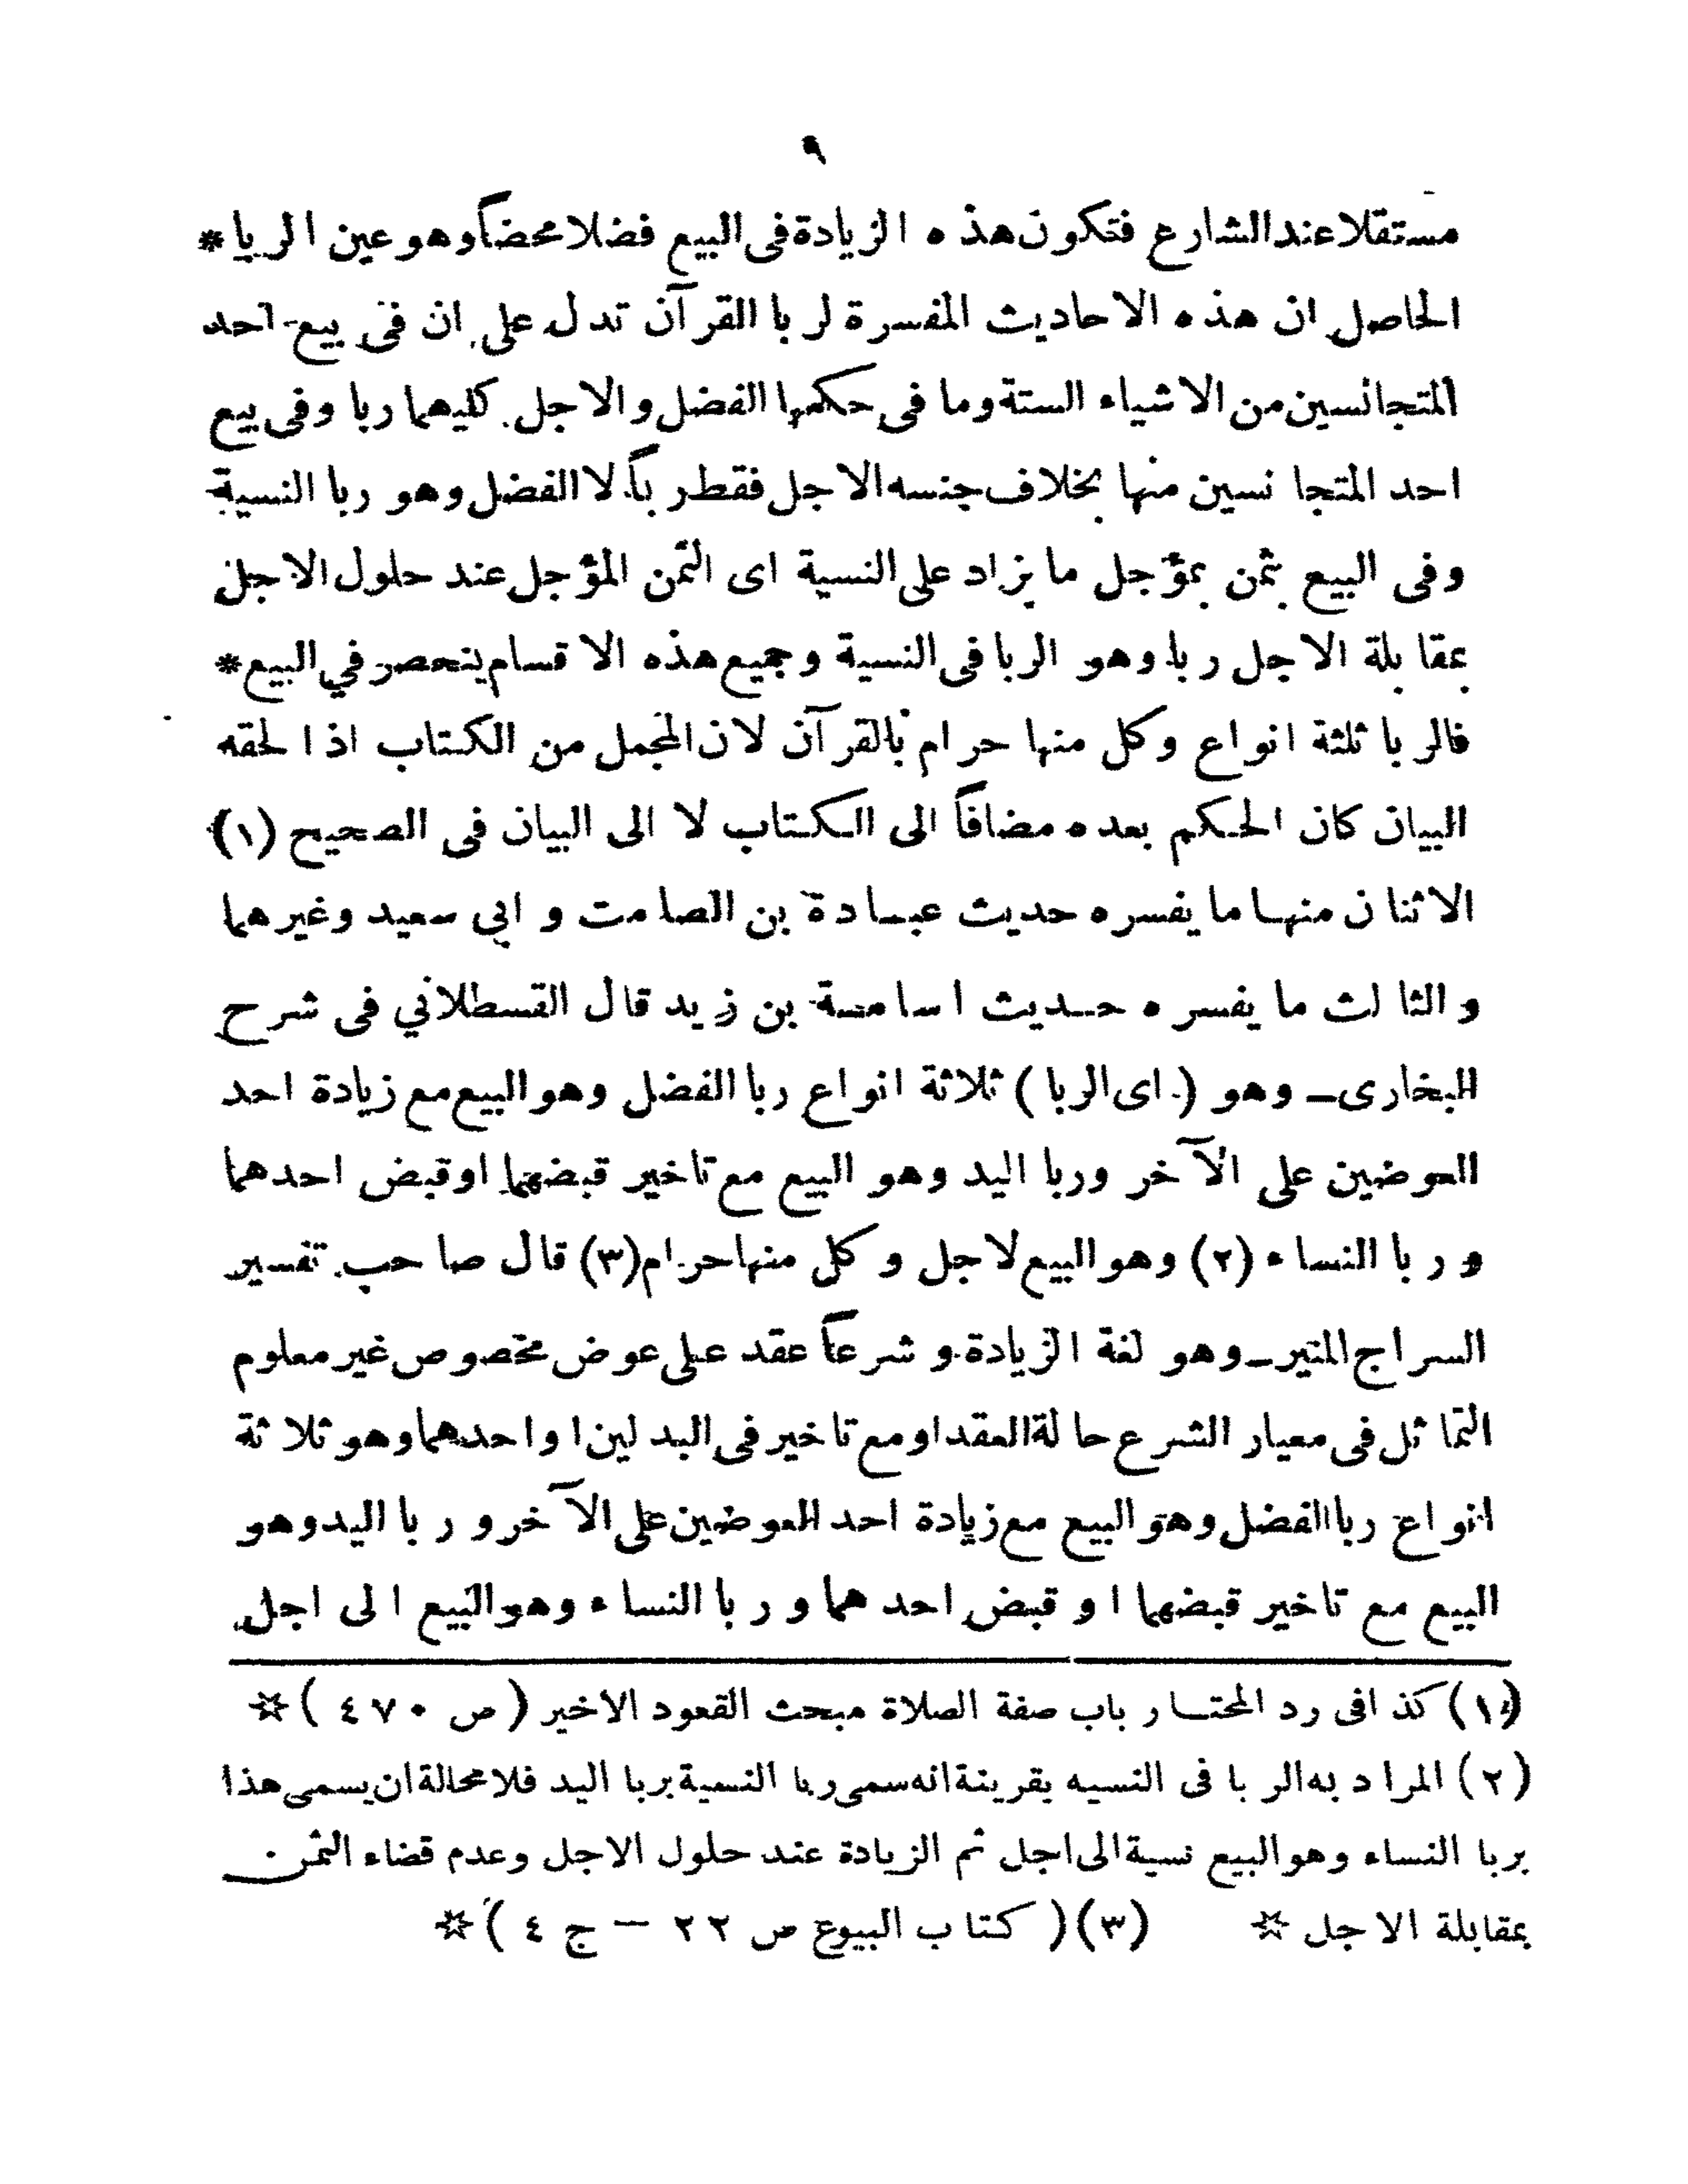 ٩
مستقلا عند الشارع فتكون هذه الزيادة فى البيع فضلا محضاً وهو عين الربا *
الحاصل ان هذه الاحاديث المفسرة لربا القرآن تدل على ان فى بيع احد
المتجانسين من الاشياء الستة وما فى حكمها الفضل والاجل كليهما ربا وفى بيع
احد المتجانسين منها بخلاف جنسه الاجل فقط رباً لا الفضل وهو ربا النسية
وفى البيع بثمن بمؤجل ما يزاد على النسية اى الثمن المؤجل عند حلول الاجل
بمقابلة الاجل ربا وهو الربا فى النسية وجميع هذه الاقسام ينحصر في البيع *
فالربا ثلثة انواع وكل منها حرام بالقرآن لان المجمل من الكتاب اذا لحقه
البيان كان الحكم بعده مضافاً الى الكتاب لا الى البيان فى الصحيح (١)
الاثنان منها ما يفسره حديث عبادة بن الصامت و ابي سعيد وغيرهما
و الثالث ما يفسره حديث اسامة بن زيد قال القسطلاني فى شرح
البخارى ـ وهو ( اى الربا ) ثلاثة انواع ربا الفضل وهو البيع مع زيادة احد
العوضين على الآخر وربا اليد وهو البيع مع تاخير قبضهما او قبض احدهما
و ربا النساء (٢) وهو البيع لاجل وكل منها حرام (٣) قال صاحب تفسير
السراج المتير ـ وهو لغة الزيادة و شرعاً عقد على عوض مخصوص غير معلوم
التماثل فى معيار الشرع حالة العقد او مع تاخير فى البدلين او احدهما وهو ثلاثة
انواع ربا الفضل وهو البيع مع زيادة احد العوضين على الآخر و ربا اليد وهو
البيع مع تاخير قبضهما او قبض احدهما و ربا النساء وهو البيع الى اجل
(١) كذافى رد المحتار باب صفة الصلاة مبحث القعود الاخير ( ص ٤٧٠ ) ☆
(٢) المراد به الربا فى النسيه بقرينة انه سمى ربا النسية بربا اليد فلا محالة ان يسمى هذا
بربا النساء وهو البيع نسية الى اجل ثم الزيادة عند حلول الاجل وعدم قضاء الثمن
بمقابلة الاجل ☆ (٣) ( كتاب البيوع ص ٢٢ — ج ٤ ) ☆